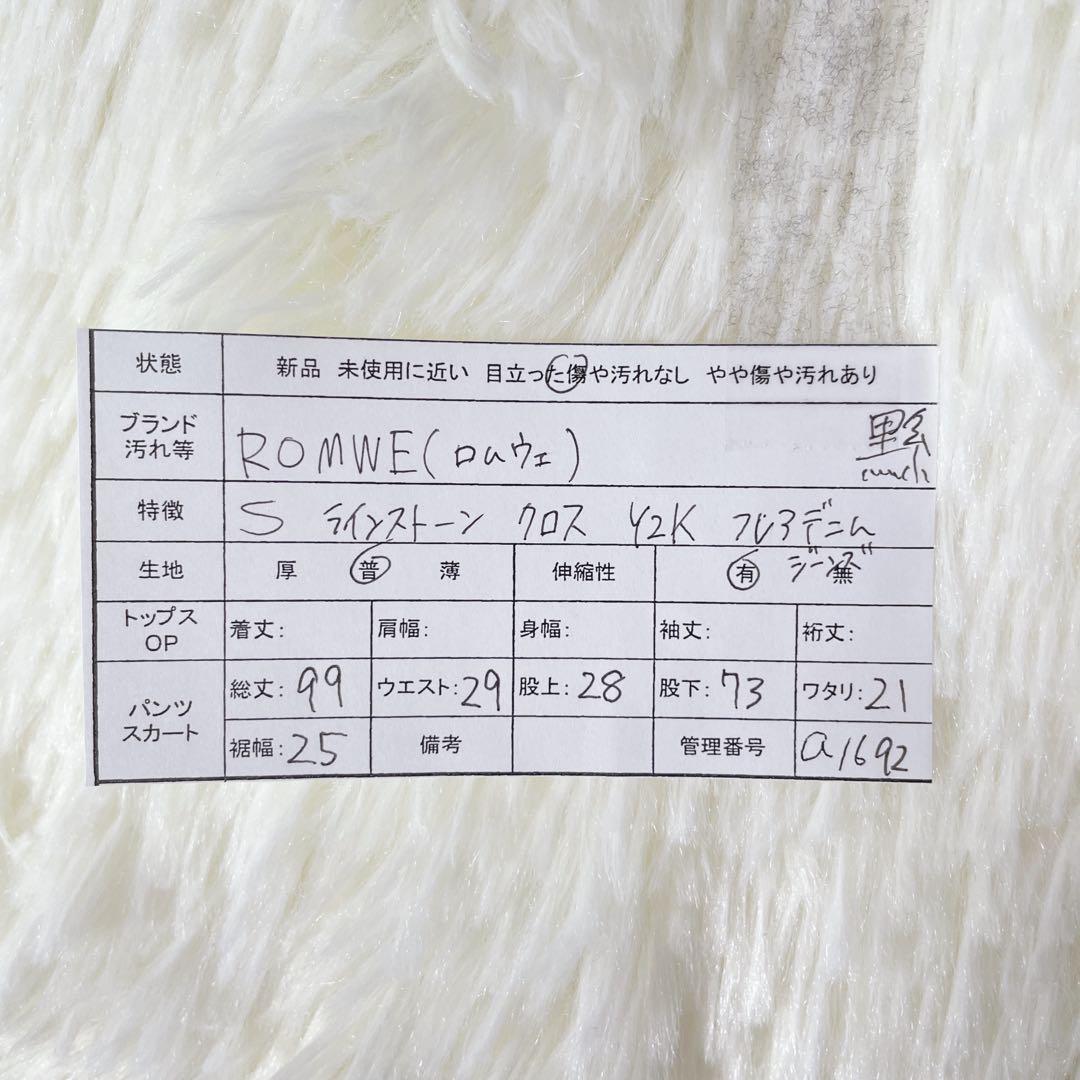 状態 新品 未使用に近い 目立った傷や汚れなし やや傷や汚れあり
ブランド
汚れ等 ROMWE(ロムウェ)
特徴 S ラインストーン クロス Y2K フレアデニム
ジーンズ
生地 厚 普 薄 伸縮性 有 無
トップス
OP 着丈: 肩幅: 身幅: 袖丈: 裄丈:
パンツ
スカート 総丈:99 ウエスト:29 股上:28 股下:73 ワタリ:21
裾幅:25 備考 管理番号 a1692